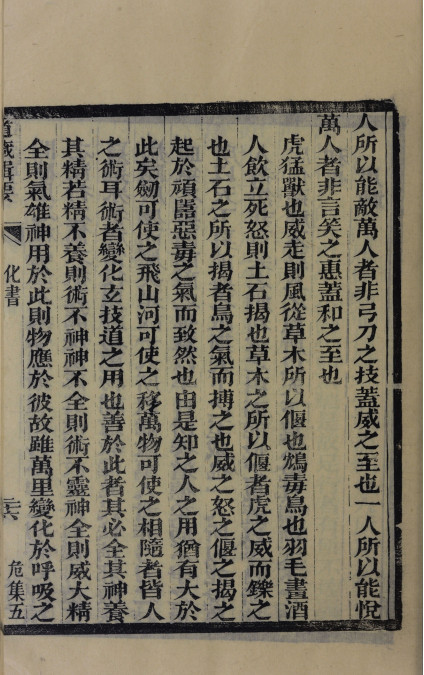 人所以能敵萬人者非弓刀之技蓋威之至也一人所以能悅
萬人者非言笑之惠蓋和之至也
虎猛獸也威走則風從草木所以偃也鴆毒鳥也羽毛畫酒
人飲立死怒則土石揭也草木之所以偃者虎之威而鑠之
也土石之所以揭者鳥之氣而搏之也威之怒之偃之揭之
起於頑嚚惡毒之氣而致然也由是知之人之用猶有大於
此矣劒可使之飛山河可使之移萬物可使之相隨者皆人
之術耳術者變化玄技道之用也善於此者其必全其神養
其精若精不養則術不神神不全則術不靈神全則威大精
全則氣雄神用於此則物應於彼故雖萬里變化於呼吸之
道藏輯要
化書
二六
危集五